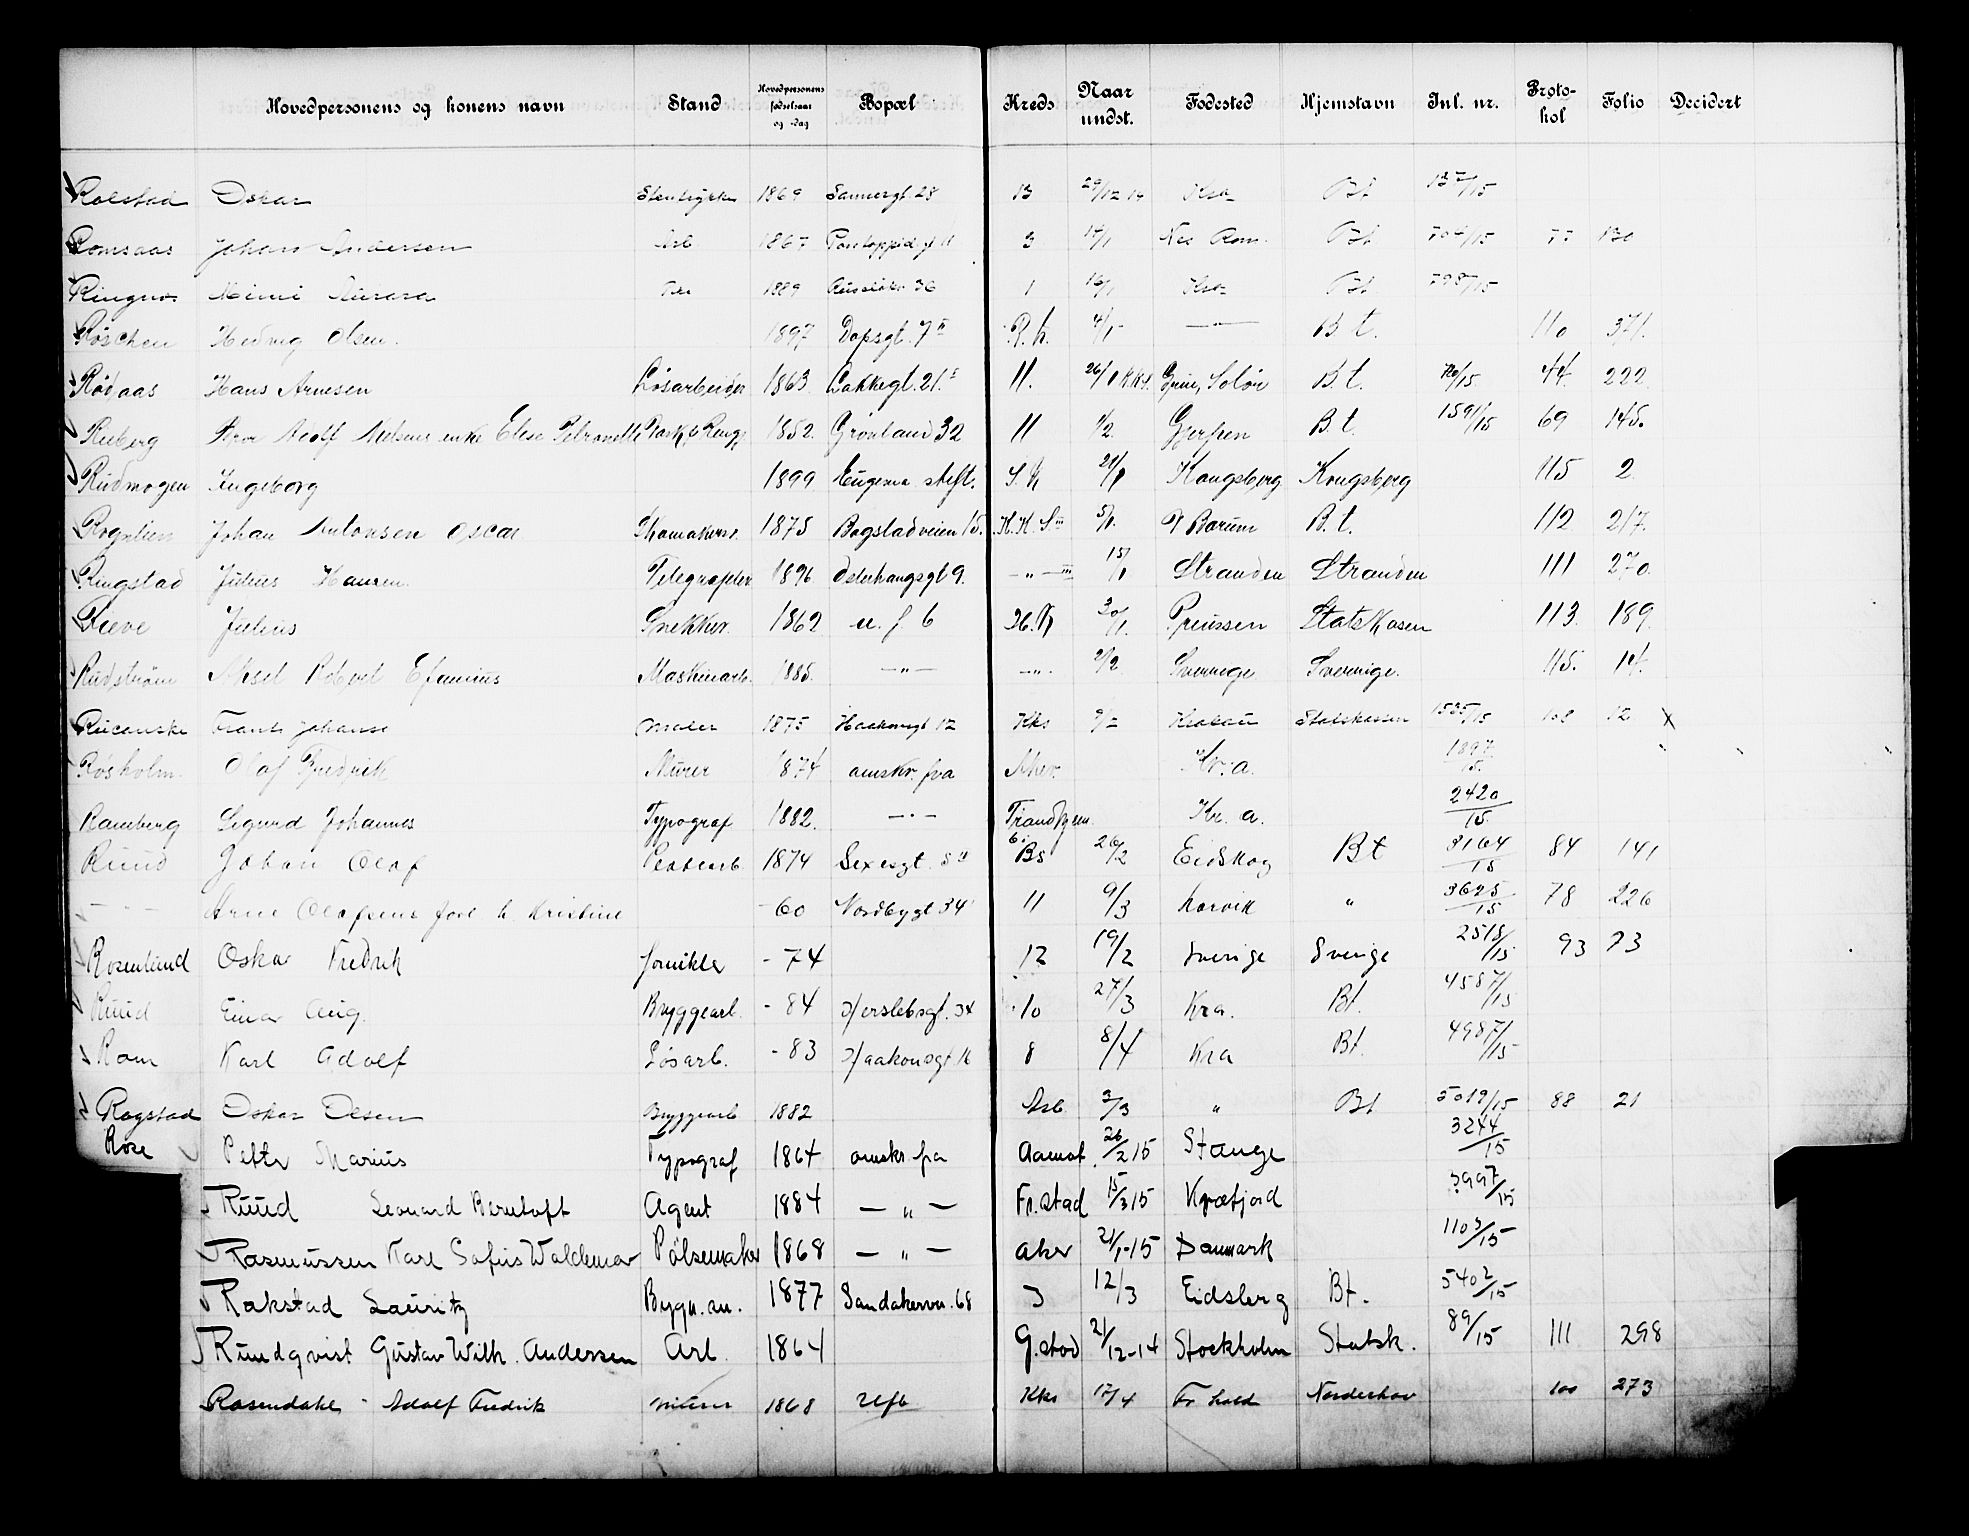 Hovedpersonens og konens navn Stand Hovedpersonens fødselsaar og -dag Bopæl Kreds Naar undst. Fødested Hjemstavn Inl. nr. Protokol Folio Decidert
Rolstad Oskar 1869 Sannergt. 28 13 29/12 14 Kra Bt 137/15
Romsaas Johan Andersen Arb 1867 3 14/1 Nes Rom. Bt 704/15 77 130
Ringnes Mimi Aurora 1889 Ruseløkv 36 1 16/1 Kra Bt 798/15
Røschen Hedvig Olsen. 1897 Dopsgt. 7 II R. h. 4/1 — " — B. t. 110 371.
Rødaas Hans Arnesen Løsarbeider 1863 Lakkegt. 21 11. 26/1 Grue, Solør B. t. 44. 222
Ruberg Adolf Nielsens enke Elise Petronelle 1852. Grønland 32 11 1/2. Gjerpen B. t. 1591/15 69 145.
Rudmogen Ingeborg 1899 Eugenia stift. S. h 21/1 Kongsberg Kongsberg 115 2
Rognlien Johan Antonsen Oscar Skomakersv. 1875 Bogstadveien 15. K. K. S III 5/1. V Bærum B. t. 112 217.
Ringstad Julius Hansen. Telegrafelev 1896 Osterhausgt 9. — " — III 15/1 Stranden Stranden 111 270.
Rieve Julius Snekker. 1862 u. f. 6 26. h 30/1. Preussen Statskasen 113. 189.
Rudstrøm Aksel Robert Efanius Maskinarb. 1885. — " — — " — 2/2. Sverrige Sverrige. 115. 14.
Frants Johansen Maler 1875 Haakonsgt 12 Kks 9/2 Statskassen 1535/15 108 12 x
Rosholm. Olaf Fredrik Murer 1874 omskr. fra Aker. Kr. a. 1897/15.
Ramberg Sigurd Johannes Typograf 1882. — " — Trondhjem. Kr. a. 2420/15.
Ruud Johan Olaf 1874 Sexesgt. 5 II 6. Bs 26/2 Eidskog Bt 3164/15 84 141
— " — Arne Olafsens forl. h. Kristine - 60 Nordbygt 34 11 9/3 Larvik " 3625/15 78 226
Rosenlund Oskar Fredrik Fornikler - 74 12 19/2 Sverige Sverige 2518/15 93 73
Ruud Einar Aug. Bryggearb. - 84 Herslebsgt. 34 10 27/3 Kra. Bt. 4587/15
Ram Karl Adolf Løsarb. - 83 Haakonsgt. 16 8 8/4 Kra Bt. 4987/15
Rogstad Oskar Olsen Bryggearb 1882 Arb 3/3 " Bt 5019/15 88 21
Rose Petter Marius Typograf 1864 omskr fra Aamot. 26/2 15 Stange 3244/15
Ruud Leonard Berntoft Agent 1884 — " — Fr. stad 15/3 15 Kvæfjord 3997/15
Rasmussen Karl Sofus Waldemar Pølsemaker 1868 — " — Aker 21/1-15 Danmark 1103/15
Rakstad Lauritz Bygn. sn. 1877 Sandakervn. 68 3 12/3 Eidsberg Bt. 5402/15
Rundqvist Gustav Wilh. Andersen Arb. 1864 G. stad 21/12-14 Stockholm Statsk. 89/15 111 298
Rosendahl - Adolf Fredrik Murer 1868 Ufb Kks 17/4 Fr hald Norderhov 100 273